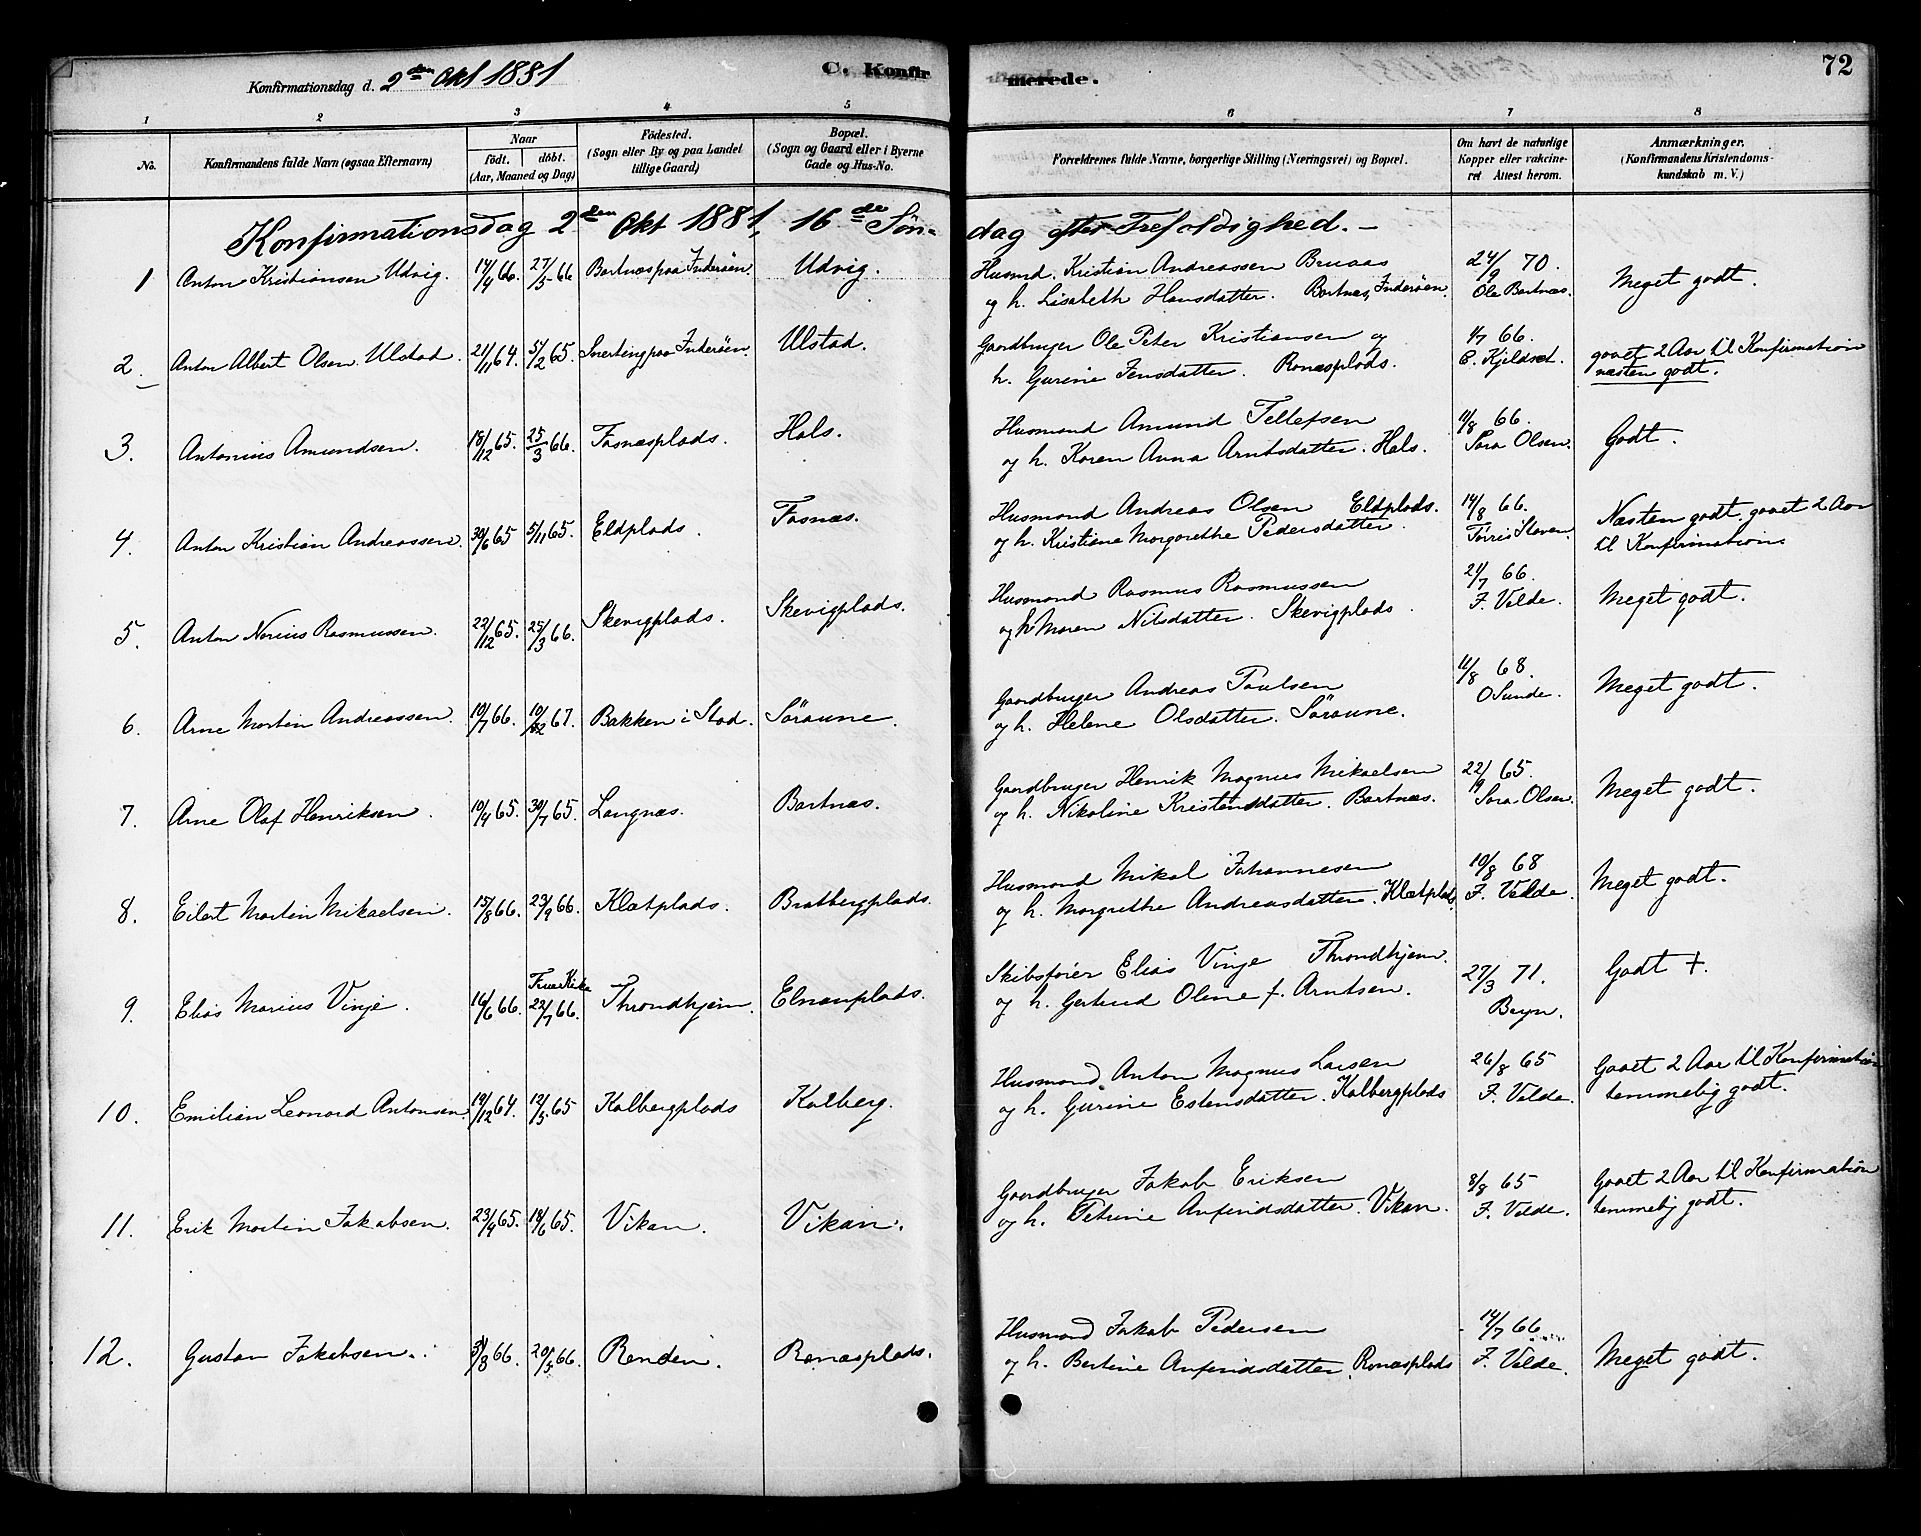 Konfirmationsdag d. 2den Okt 1881
C. Konfirmerede.
72
1 2 3 4 5 6 7 8
No.
Konfirmandens fulde Navn (ogsaa Efternavn)
Naar
födt. döbt.
(Aar, Maaned og Dag)
Födested.
(Sogn eller By og paa Landet
tillige Gaard)
Bopæl.
(Sogn og Gaard eller i Byerne
Gade og Hus-No.
Forældrenes fulde Navne, borgerlige Stilling (Næringsvei) og Bopæl.
Om havt de naturlige
Kopper eller vakcine-
ret Attest herom.
Anmærkninger.
(Konfirmandens Kristendoms-
kundskab m. V.)
Konfirmationsdag 2den Okt 1881, 16de Søndag efter Trefoldighed. —
1 Anton Kristiansen Udvig. 14/4 66. 27/5 66 Bartnæs paa Inderøen Udvig. Husmd. Kristian Andreassen Bruaas 24/9 70. Meget godt.
og h. Lisabeth Hansdatter. Bartnæs, Inderøen. Ole Bartnæs.
2. Anton Albert Olsen Ulstad. 21/11 64. 5/2 65. paa Inderøen. Ulstad. Gaardbruger Ole Peter Kristiansen og 1/7 66. gaaet 2 Aar til Konfirmation
h. Gurine Jensdatter. Ronæsplads. E. Kjeldset. næsten godt.
3. Antonius Amundsen. 18/12 65. 25/3 66. Fosnæsplads. Hals. Husmand Amund Tellefsen 11/8 66. Godt.
og h. Karen Anna Arntsdatter. Hals. Sara Olsen.
4. Anton Kristian Andreassen. 30/6 65 5/11 65. Eldplads. Fosnæs. Husmand Andreas Olsen Eldplads. 14/8 66. Næsten godt. gaaet 2 Aar
og h. Kristiane Margarethe Pedersdatter. Torris Staven. til Konfirmation
5. Anton Norius Rasmussen. 22/12 65. 25/3 66. Skevigplads. Skevigplads. Husmand Rasmus Rasmussen 21/7 66. Meget godt.
og h Maren Nilsdatter. Skevigplads. F. Velde.
6. Arne Martin Andreassen. 10/7 66. 10/2 67. Bakken i Stod. Söraune. Gaardbruger Andreas Paulsen 11/8 68. Meget godt.
og h. Helene Olsdatter. Söraune. O Sunde.
7. Arne Olaf Henriksen. 10/4 65. 30/7 65. Langnæs. Bartnæs. Gaardbruger Henrik Magnus Mikaelsen 22/9 65. Meget godt.
og h. Nikoline Kristensdatter. Bartnæs. Sara Olsen.
8. Eilert Martin Mikaelsen. 15/8 66. 23/9 66. Klætplads. Bratbergplads. Husmand Mikal Johannesen 10/8 68 Meget godt.
og h. Margrethe Andreasdatter. Klætplads. F. Velde.
9. Elias Marius Vinje. 16/6 66. Frue Kirke 22/7 66. Throndhjem. Elnanplads. Skibsfører Elias Vinje Throndhjem. 27/3 71. Godt +.
og h. Gertrud Oline f. Arntsen. Beyn.
10. Emilian Leonard Antonsen. 19/12 64. 12/5 65 Kolbergplads Kolberg. Husmand Anton Magnus Larsen 26/8 65 Gaaet 2 Aar til Konfirmation
og h. Gurine Estensdatter. Kolbergplads F. Velde. temmelig godt.
11. Erik Martin Jakobsen. 23/4 65. 18/6 65. Vikan. Vikan. Gaardbruger Jakob Eriksen 8/8 65 Gaaet 2 Aar til Konfirmation
og h. Petrine Anfindsdatter. Vikan. F. Velde. temmelig godt.
12. Gustav Jakobsen. 31/3 66. 20/5 66. Renden. Ronæsplads. Husmand Jakob Pedersen 14/7 66 Meget godt.
og h. Bertine Anfindsdatter. Ronæsplads F. Velde.